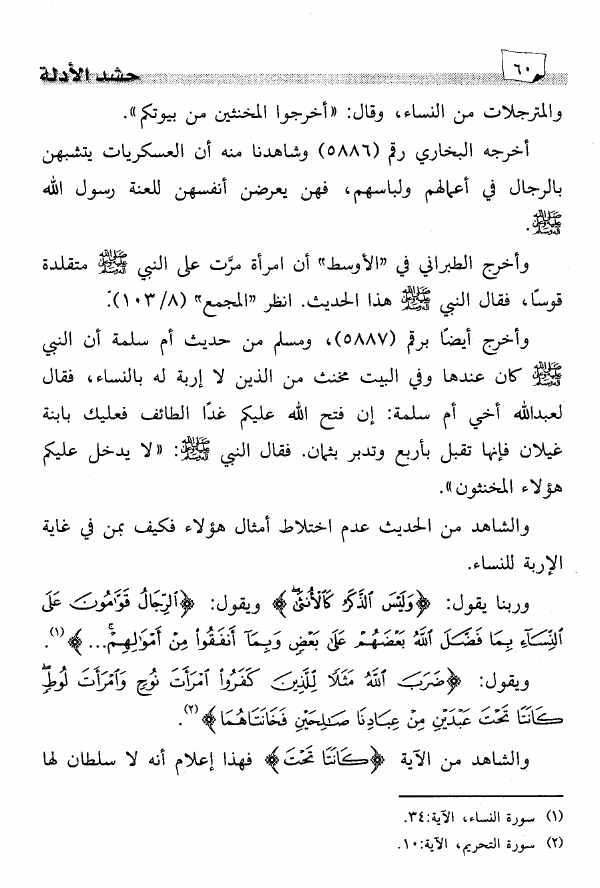 ٦٠
حشد الأدلة
والمترجلات من النساء، وقال: «أخرجوا المخنثين من بيوتكم».
أخرجه البخاري رقم (٥٨٨٦) وشاهدنا منه أن العسكريات يتشبهن
بالرجال في أعمالهم ولباسهم، فهن يعرضن أنفسهن للعنة رسول الله
ﷺ.
وأخرج الطبراني في «الأوسط» أن امرأة مرَّت على النبي ﷺ متقلدة
قوسًا، فقال النبي ﷺ هذا الحديث. انظر «المجمع» (١٠٣/٨).
وأخرج أيضًا برقم (٥٨٨٧)، ومسلم من حديث أم سلمة أن النبي
ﷺ كان عندها وفي البيت مخنث من الذين لا إربة له بالنساء، فقال
لعبدالله أخي أم سلمة: إن فتح الله عليكم غدًا الطائف فعليك بابنة
غيلان فإنها تقبل بأربع وتدبر بثمان. فقال النبي ﷺ: «لا يدخل عليكم
هؤلاء المخنثون».
والشاهد من الحديث عدم اختلاط أمثال هؤلاء فكيف بمن في غاية
الإربة للنساء.
وربنا يقول: ﴿وَلَيْسَ الذَّكَرُ كَالْأُنثَىٰ﴾ ويقول: ﴿الرِّجَالُ قَوَّٰمُونَ عَلَى
النِّسَآءِ بِمَا فَضَّلَ اللَّهُ بَعْضَهُمْ عَلَىٰ بَعْضٍ وَبِمَآ أَنفَقُوا۟ مِنْ أَمْوَٰلِهِمْ...﴾(١).
ويقول: ﴿ضَرَبَ اللَّهُ مَثَلًا لِّلَّذِينَ كَفَرُوا۟ امْرَأَتَ نُوحٍ وَامْرَأَتَ لُوطٍ
كَانَتَا تَحْتَ عَبْدَيْنِ مِنْ عِبَادِنَا صَٰلِحَيْنِ فَخَانَتَاهُمَا﴾(٢).
والشاهد من الآية ﴿كَانَتَا تَحْتَ﴾ فهذا إعلام أنه لا سلطان لها
(١) سورة النساء، الآية:٣٤.
(٢) سورة التحريم، الآية:١٠.